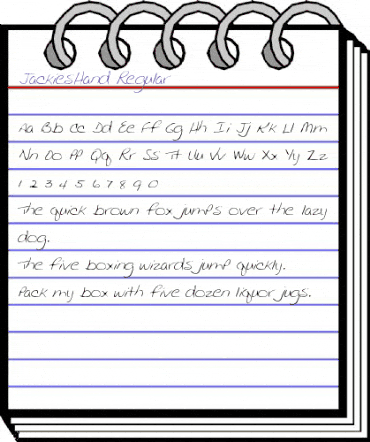 JackiesHand Regular
Aa Bb Cc Dd Ee Ff Gg Hh Ii Jj Kk Ll Mm
Nn Oo Pp Qq Rr Ss Tt Uu Vv Ww Xx Yy Zz
1 2 3 4 5 6 7 8 9 0
The quick brown fox jumps over the lazy
dog.
The five boxing wizards jump quickly.
Pack my box with five dozen liquor jugs.